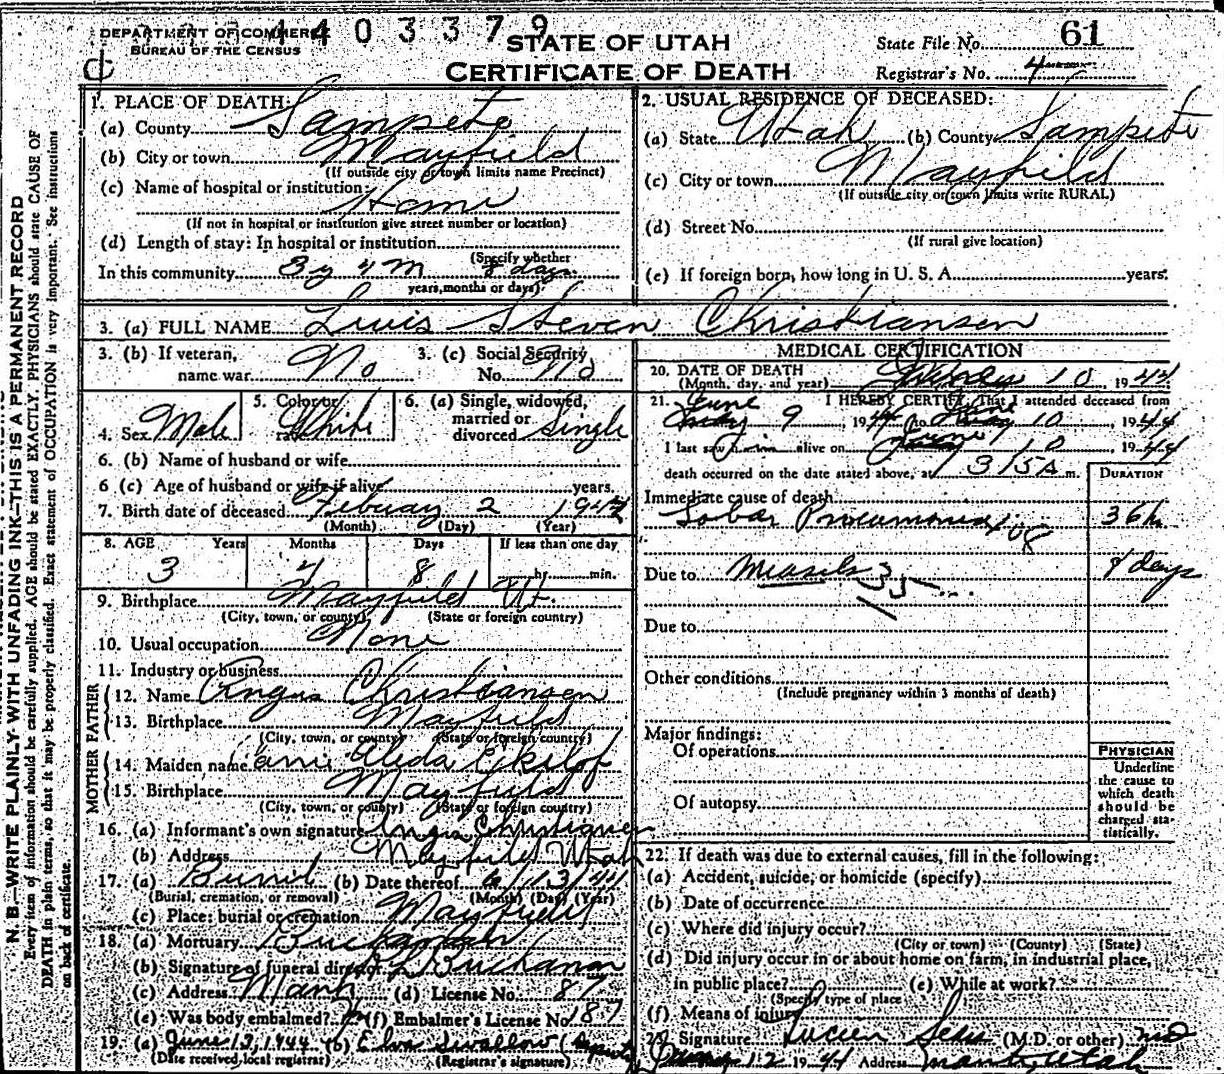 4403379
DEPARTMENT OF COMMERCE
BUREAU OF THE CENSUS
STATE OF UTAH
CERTIFICATE OF DEATH
State File No. 61
Registrar's No. 4
N. B.—WRITE PLAINLY WITH UNFADING INK—THIS IS A PERMANENT RECORD
Every item of information should be carefully supplied. AGE should be stated EXACTLY. PHYSICIANS should state CAUSE OF
DEATH in plain terms, so that it may be properly classified. Exact statement of OCCUPATION is very important. See instructions
on back of certificate.
1. PLACE OF DEATH:
(a) County Sanpete
(b) City or town Mayfield
(If outside city or town limits name Precinct)
(c) Name of hospital or institution:
Home
(If not in hospital or institution give street number or location)
(d) Length of stay: In hospital or institution
(Specify whether
In this community 3 y 4 m 8 days
years, months or days)
2. USUAL RESIDENCE OF DECEASED:
(a) State Utah (b) County Sanpete
(c) City or town Mayfield
(If outside city or town limits write RURAL)
(d) Street No.
(If rural give location)
(e) If foreign born, how long in U. S. A. years.
3. (a) FULL NAME Lewis Steven Christiansen
3. (b) If veteran, name war No
3. (c) Social Security No. No
4. Sex Male
5. Color or race White
6. (a) Single, widowed, married or divorced Single
6. (b) Name of husband or wife
6 (c) Age of husband or wife if alive years.
7. Birth date of deceased Febuary 2
(Month) (Day) (Year)
8. AGE Years Months Days If less than one day
3 4 8 hr. min.
9. Birthplace Mayfield Ut.
(City, town, or county) (State or foreign country)
10. Usual occupation None
11. Industry or business
FATHER
12. Name Angus Christiansen
13. Birthplace Mayfield
(City, town, or county) (State or foreign country)
MOTHER
14. Maiden name Aleda
15. Birthplace Mayfield
(City, town, or county) (State or foreign country)
16. (a) Informant's own signature Angus Christiansen
(b) Address Mayfield Utah
17. (a) Buriil (b) Date thereof 6/13/44
(Burial, cremation, or removal) (Month) (Day) (Year)
(c) Place: burial or cremation Mayfield
18. (a) Mortuary
(b) Signature of funeral director
(c) Address Manti (d) License No. 87
(e) Was body embalmed? (f) Embalmer's License No. 187
19. (a) June 12, 1944 (b) Elva Swallow
(Date received local registrar) (Registrar's signature)
MEDICAL CERTIFICATION
20. DATE OF DEATH
(Month, day, and year) 10, 1944
21. I HEREBY CERTIFY, That I attended deceased from
June 9, 1944 to June 10, 1944
I last saw him alive on June 10, 1944
death occurred on the date stated above, at 315 A m.
DURATION
Immediate cause of death
Lobar Pneumonia 108 36 h
Due to Measels 35
days
Due to
Other conditions
(Include pregnancy within 3 months of death)
Major findings:
Of operations
Of autopsy
PHYSICIAN
Underline
the cause to
which death
should be
charged sta-
tistically.
22. If death was due to external causes, fill in the following:
(a) Accident, suicide, or homicide (specify)
(b) Date of occurrence
(c) Where did injury occur?
(City or town) (County) (State)
(d) Did injury occur in or about home on farm, in industrial place,
in public place? (e) While at work?
(Specify type of place
(f) Means of injury
23. Signature Lucien Sears (M.D. or other) MD
12 1944 Address Manti, Utah